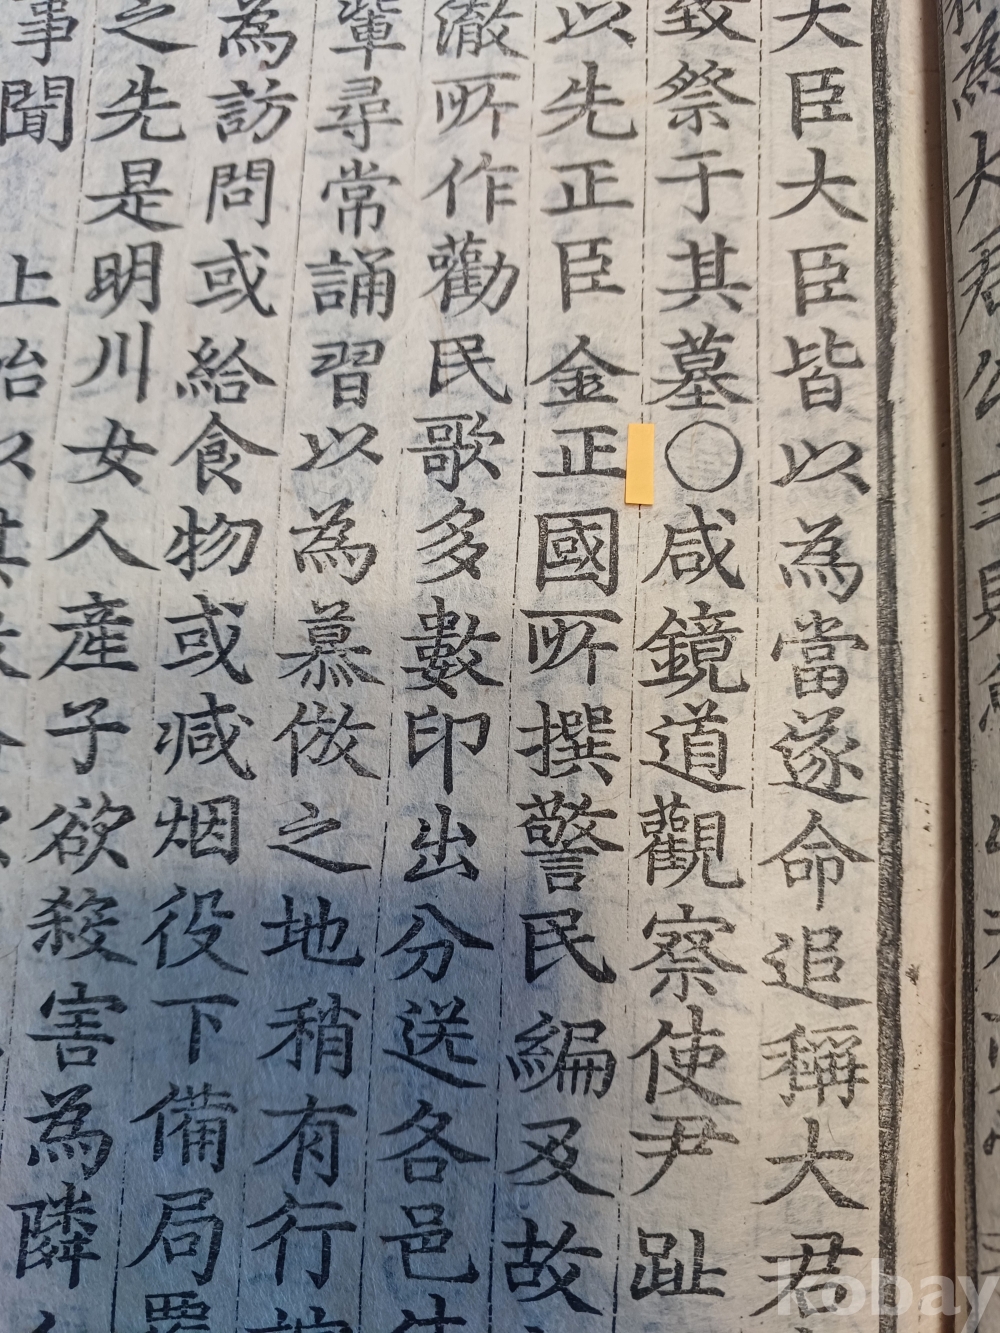 大臣大臣皆以為當遂命追稱大君
致祭于其墓○咸鏡道觀察使尹趾
以先正臣金正國所撰警民編及故
澈所作勸民歌多數印出分送各邑
輩尋常誦習以為慕倣之地稍有行
為訪問或給食物或减烟役下備局
之先是明川女人產子欲殺害為隣
事聞 上
kobay